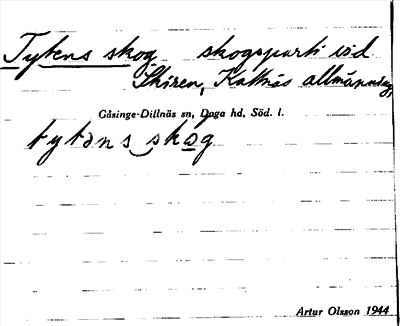 Tykens skog skogsparti vid
Skiren, Kattnäs allmänning,
Gåsinge-Dillnäs sn, Daga hd, Söd. l.
tykəns skog
Artur Olsson 1944